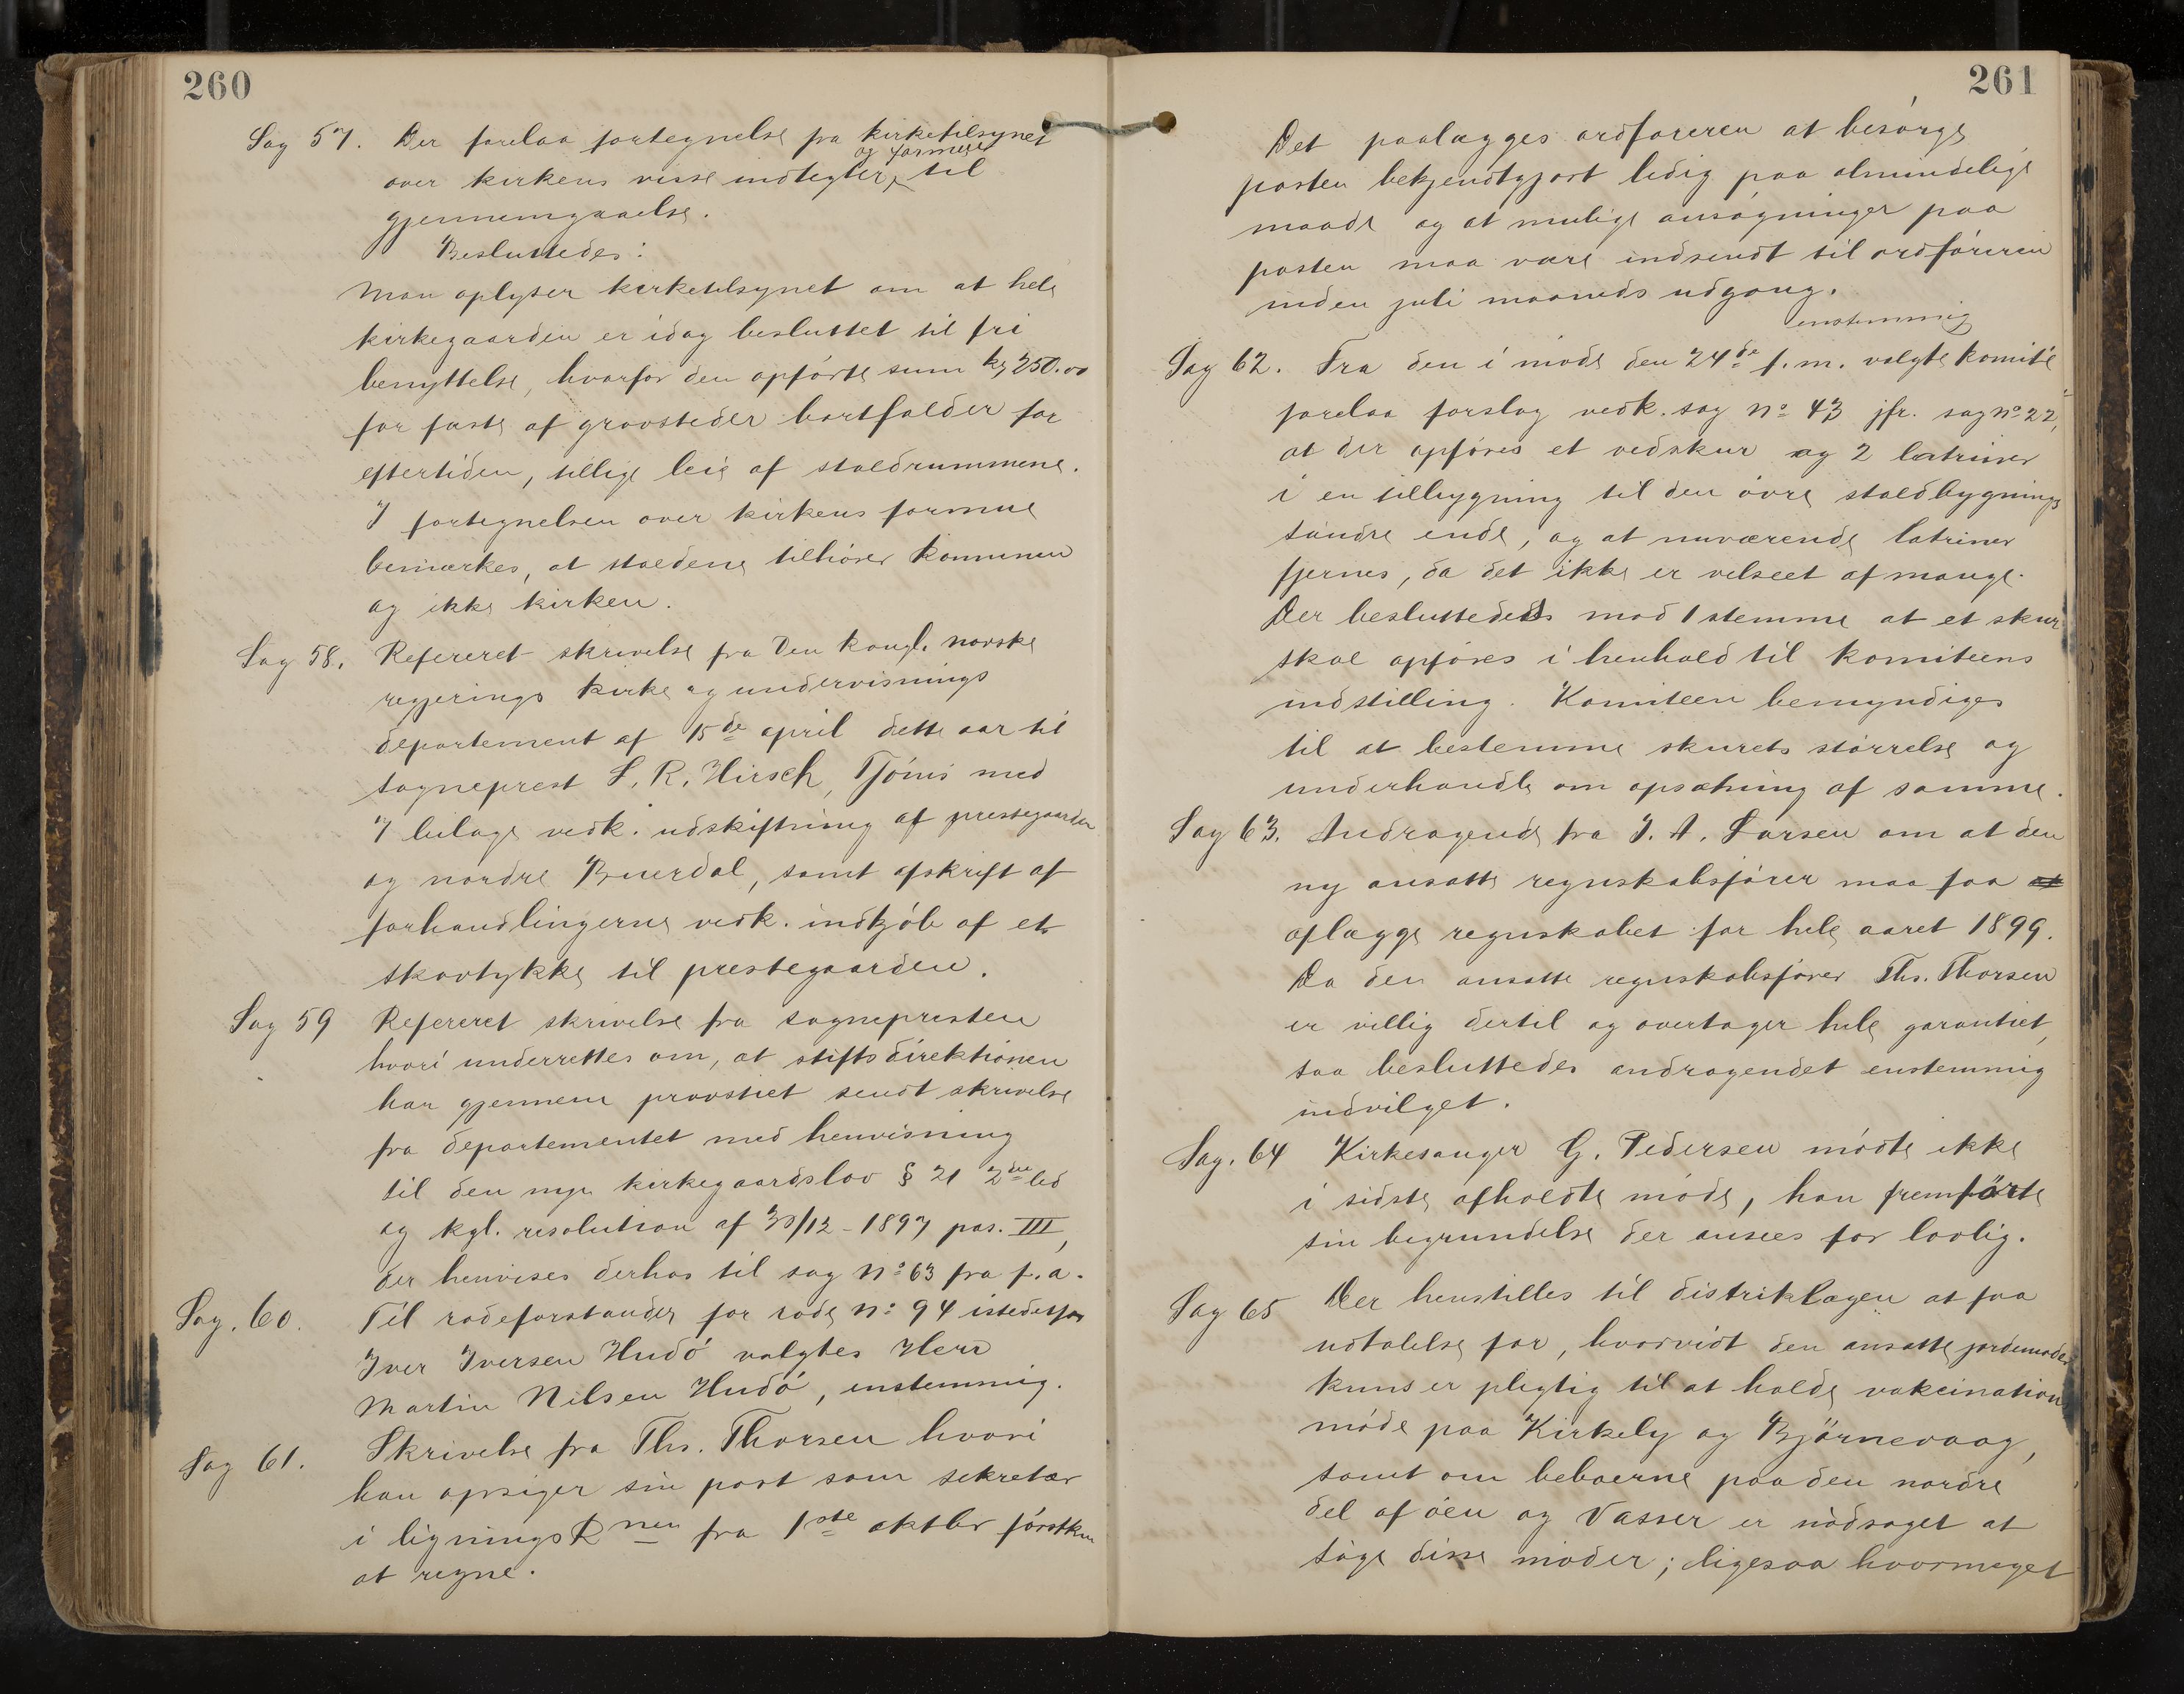 260
Sag 57. Der forelaa fortegnelse fra kirketilsynet
og formue
over kirkens visse indtegter, til
gjennemgaaelse.
Besluttedes:
Man oplyser kirketilsynet om at hele
kirkegaarden er idag besluttet til fri
benyttelse, hvorfor den opførte sum kr 250.00
for fæste af gravsteder bortfalder for
eftertiden, tillige leie af staldrummene.
I fortegnelsen over kirkens formue
bemærkes, at staldene tilhører kommunen
og ikke kirken.
Sag 58. Refereret skrivelse fra Den kongl. norske
regjerings kirke og undervisnings
departement af 15de april dette aar til
sogneprest L. R. Hirsch, Tjømø med
7 bilage vedk. udskiftning af prestegaarden
og nordre Buerdal, samt afskrift af
forhandlingerne vedk. indkjøb af et
skovstykke til prestegaarden.
Sag 59 Refereret skrivelse fra sognepresten
hvori underrettes om, at stiftsdirektionen
har gjennem provstiet sendt skrivelse
fra departementet med henvisning
til den nye kirkegaardslov § 21 2det led
og kgl. resolution af 30/12-1897 pos. III,
der henvises derhos til sag No 63 fra f. a.
Sag. 60. Til rodeforstander for rode No 94 istedetfor
Iver Iversen Hudø valgtes Herr
Martin Nilsen Hudø, enstemmig.
Sag 61. Skrivelse fra Ths. Thorsen hvori
han opsiger sin post som sekretær
i ligningsKnen fra 1ste oktbr førstkm
at regne.
261
Det paalægges ordføreren at besørge
posten bekjendtgjort ledig paa almindelige
maade og at mulige ansøgninger paa
posten maa være indsendt til ordføreren
inden juli maaneds udgang.
enstemmig
Sag 62. Fra den i møde den 24de f. m. valgte komité
forelaa forslag vedk. sag No 43 jfr. sag No 22,
at der opføres et vedskur og 2 latriner
i en tilbygning til den øvre staldbygnings
søndre ende, og at nuværende latriner
fjernes, da det ikke er velseet af mange.
Der besluttedes mod 1 stemme at et skur
skal opføres i henhold til komiteens
indstilling. Komiteen bemyndiges
til at bestemme skurets størrelse og
underhandle om opsætning af samme.
Sag 63. Andragende fra J. A. Larsen om at den
ny ansatte regnskabsfører maa faa at
aflægge regnskabet for hele aaret 1899.
Da den ansatte regnskabsfører Ths. Thorsen
er villig dertil og overtager hele garantiet,
saa besluttedes andragendet enstemmig
indvilget.
Sag. 64 Kirkesanger G. Pedersen mødte ikke
i sidste afholdte møde, han fremførte
sin begrundelse der ansees for lovlig.
Sag 65 Der henstilles til distriklægen at faa
udtalelse for, hvorvidt den ansatte jordemoder
kuns er pligtig til at holde vakcination
møde paa Kirkely og Bjørnevaag,
samt om beboerne paa den nordre
del af øen og Vasser er nødsaget at
søge disse møder; ligesaa hvormeget